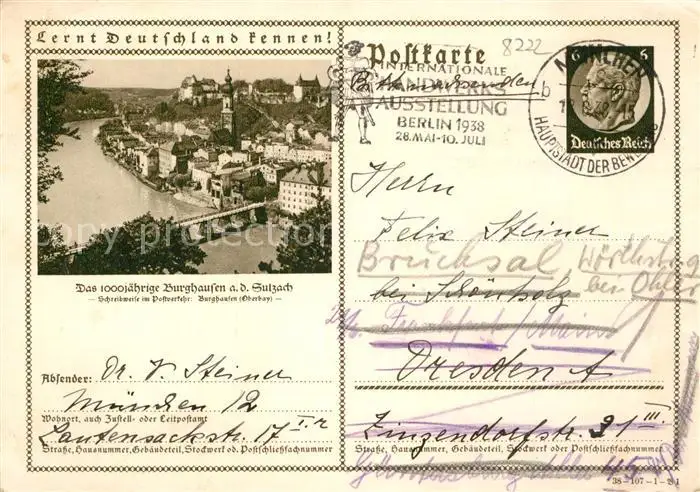 Lernt Deutschland kennen!
Postkarte
8222
INTERNATIONALE
HANDWERKS
AUSSTELLUNG
BERLIN 1938
28.MAI-10.JULI
MÜNCHEN
b
HAUPTSTADT DER BEWE
6 6
Deutsches Reich
Herrn
Felix Steiner
Bruchsal,
bei Schönholz
Frankfurt / Main
Dresden A
Zinzendorfstr. 31/III.
Straße, Hausnummer, Gebäudeteil, Stockwerk oder Postschließfachnummer
38-107-1-B1
Das 1000jährige Burghausen a.d. Sulzach
— Schreibweise im Postverkehr: Burghausen (Oberbay) —
Absender: Dr. V. Steiner
München 12
Wohnort, auch Zustell- oder Leitpostamt
Lautensackstr. 17 I. r
Straße, Hausnummer, Gebäudeteil, Stockwerk od. Postschließfachnummer